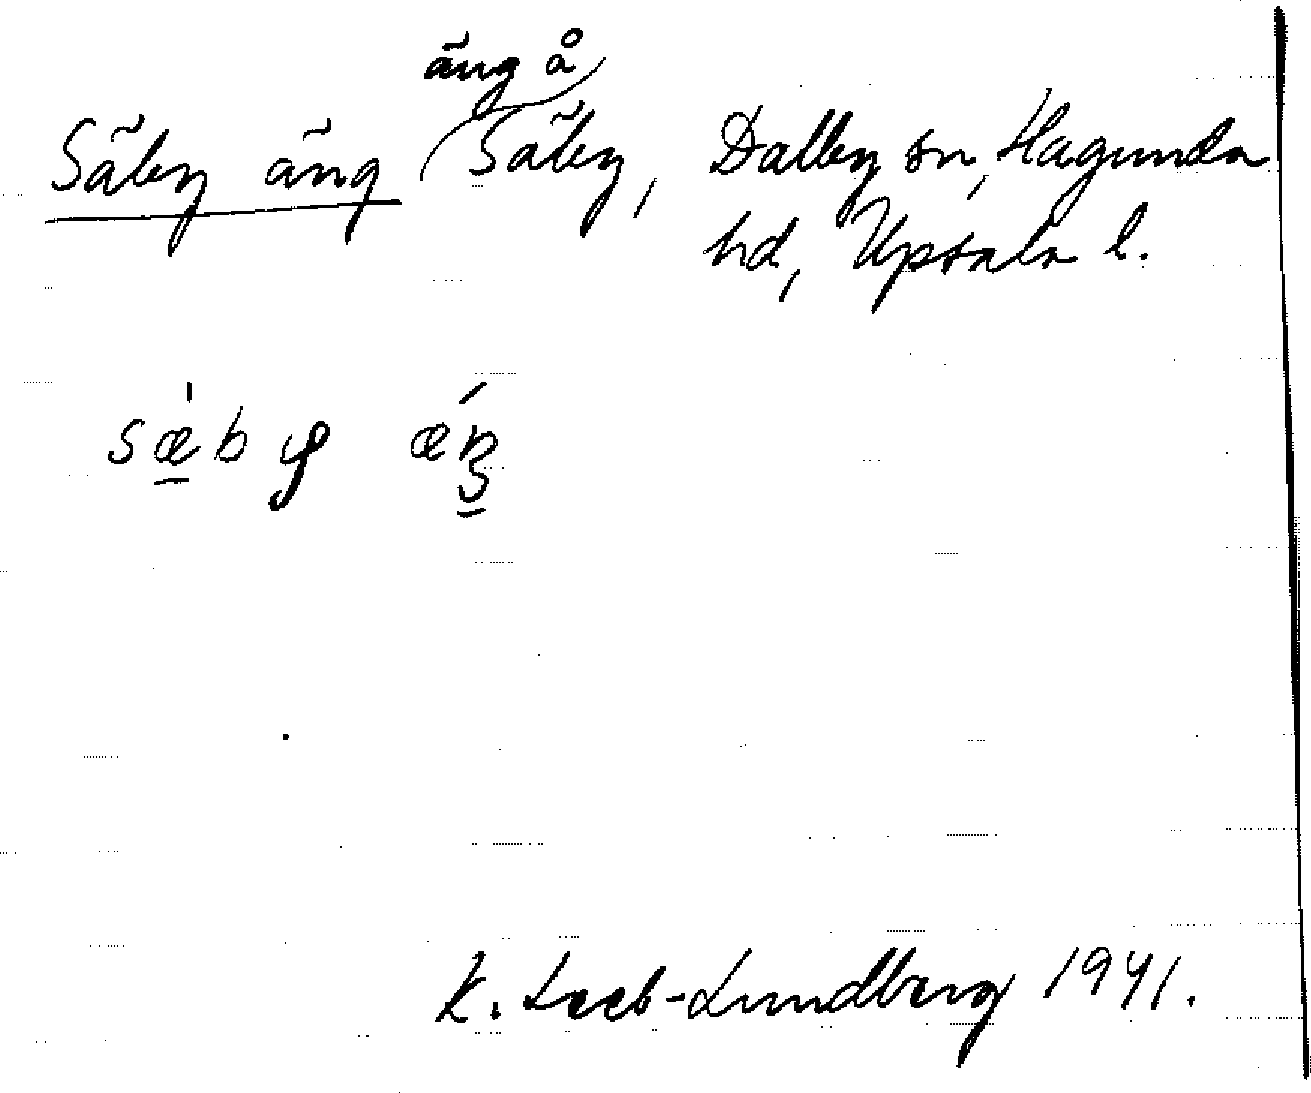 äng å
Säby äng Säby, Dalby sn, Hagunda
hd, Upsala l.
sæ̀by ǽŋ
K. Leeb-Lundberg 1941.